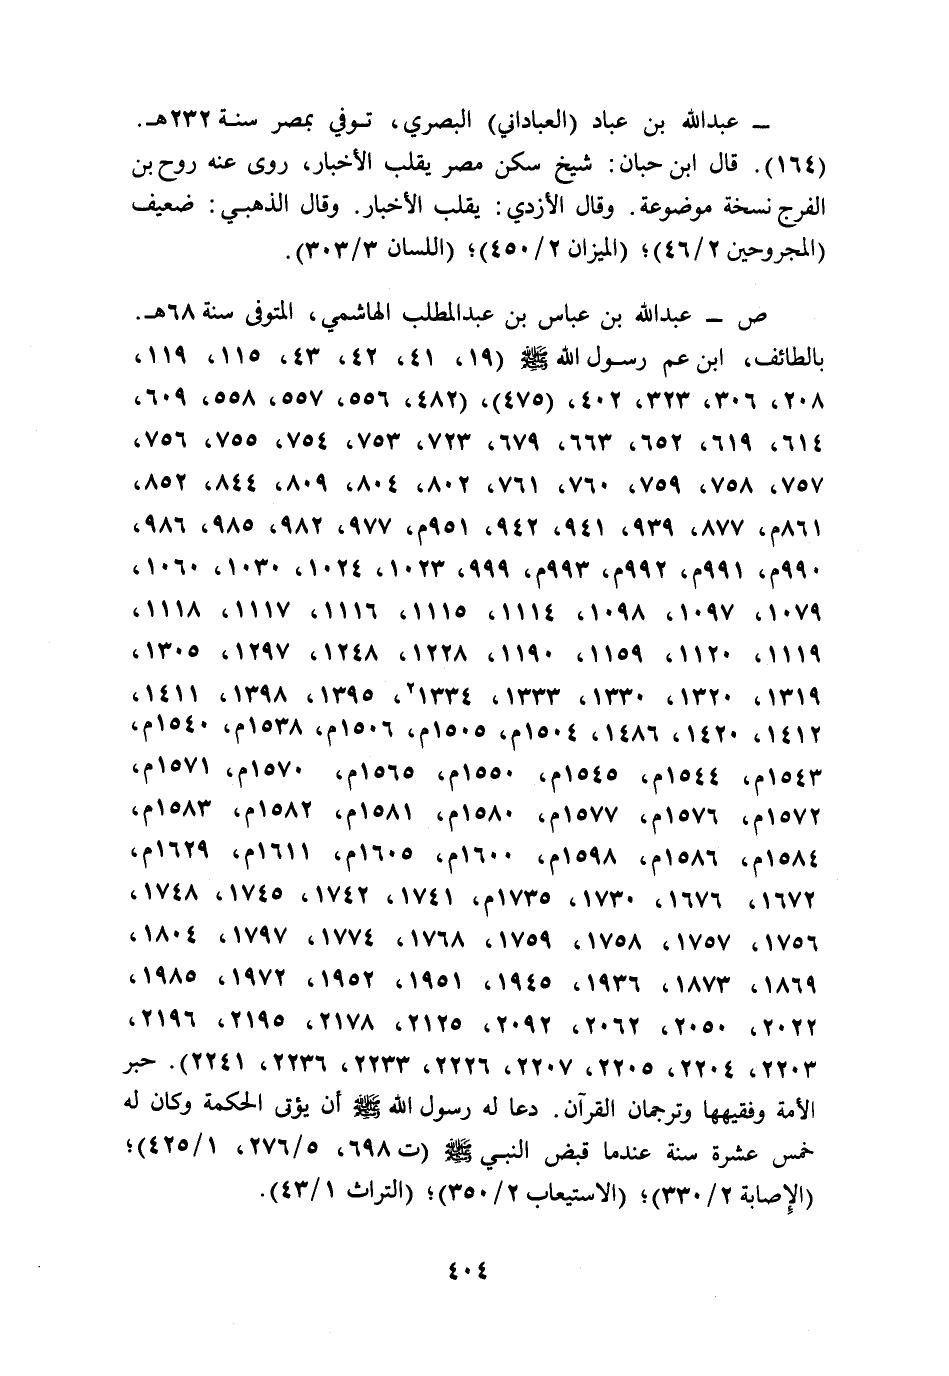 ــ عبدالله بن عباد (العباداني) البصري، تـوفي بمصر سنـة ٢٣٢هـ.
(١٦٤). قال ابن حبان: شيخ سكن مصر يقلب الأخبار، روى عنه روح بن
الفرج نسخة موضوعة. وقال الأزدي: يقلب الأخبار. وقال الذهبـي: ضعيف
(المجروحين ٤٦/٢)؛ (الميزان ٤٥٠/٢)؛ (اللسان ٣٠٣/٣).
ص ــ عبدالله بن عباس بن عبدالمطلب الهاشمي، المتوفى سنة ٦٨هـ.
بالطائف، ابن عم رسـول الله ﷺ (١٩، ٤١، ٤٢، ٤٣، ١١٥، ١١٩،
٢٠٨، ٣٠٦، ٣٢٣، ٤٠٢، (٤٧٥)، (٤٨٢، ٥٥٦، ٥٥٧، ٥٥٨، ٦٠٩،
٦١٤، ٦١٩، ٦٥٢، ٦٦٣، ٦٧٩، ٧٢٣، ٧٥٣، ٧٥٤، ٧٥٥، ٧٥٦،
٧٥٧، ٧٥٨، ٧٥٩، ٧٦٠، ٧٦١، ٨٠٢، ٨٠٤، ٨٠٩، ٨٤٤، ٨٥٢،
٨٦١م، ٨٧٧، ٩٣٩، ٩٤١، ٩٤٢، ٩٥١م، ٩٧٧، ٩٨٢، ٩٨٥، ٩٨٦،
٩٩٠م، ٩٩١م، ٩٩٢م، ٩٩٣م، ٩٩٩، ١٠٢٣، ١٠٢٤، ١٠٣٠، ١٠٦٠،
١٠٧٩، ١٠٩٧، ١٠٩٨، ١١١٤، ١١١٥، ١١١٦، ١١١٧، ١١١٨،
١١١٩، ١١٢٠، ١١٥٩، ١١٩٠، ١٢٢٨، ١٢٤٨، ١٢٩٧، ١٣٠٥،
١٣١٩، ١٣٢٠، ١٣٣٠، ١٣٣٣، ١٣٣٤²، ١٣٩٥، ١٣٩٨، ١٤١١،
١٤١٢، ١٤٢٠، ١٤٨٦، ١٥٠٤م، ١٥٠٥م، ١٥٠٦م، ١٥٣٨م، ١٥٤٠م،
١٥٤٣م، ١٥٤٤م، ١٥٤٥م، ١٥٥٠م، ١٥٦٥م، ١٥٧٠م، ١٥٧١م،
١٥٧٢م، ١٥٧٦م، ١٥٧٧م، ١٥٨٠م، ١٥٨١م، ١٥٨٢م، ١٥٨٣م،
١٥٨٤م، ١٥٨٦م، ١٥٩٨م، ١٦٠٠م، ١٦٠٥م، ١٦١١م، ١٦٢٩م،
١٦٧٢، ١٦٧٦، ١٧٣٠، ١٧٣٥م، ١٧٤١، ١٧٤٢، ١٧٤٥، ١٧٤٨،
١٧٥٦، ١٧٥٧، ١٧٥٨، ١٧٥٩، ١٧٦٨، ١٧٧٤، ١٧٩٧، ١٨٠٤،
١٨٦٩، ١٨٧٣، ١٩٣٦، ١٩٤٥، ١٩٥١، ١٩٥٢، ١٩٧٢، ١٩٨٥،
٢٠٢٢، ٢٠٥٠، ٢٠٦٢، ٢٠٩٢، ٢١٢٥، ٢١٧٨، ٢١٩٥، ٢١٩٦،
٢٢٠٣، ٢٢٠٤، ٢٢٠٥، ٢٢٠٧، ٢٢٢٦، ٢٢٣٣، ٢٢٣٦، ٢٢٤١). حبر
الأمة وفقيهها وترجمان القرآن. دعا له رسول الله ﷺ أن يؤتى الحكمة وكان له
خمس عشرة سنة عندما قبض النبـي ﷺ (ت ٦٩٨، ٢٧٦/٥، ٤٢٥/١)؛
(الإصابة ٣٣٠/٢)؛ (الاستيعاب ٣٥٠/٢)؛ (التراث ٤٣/١).
٤٠٤